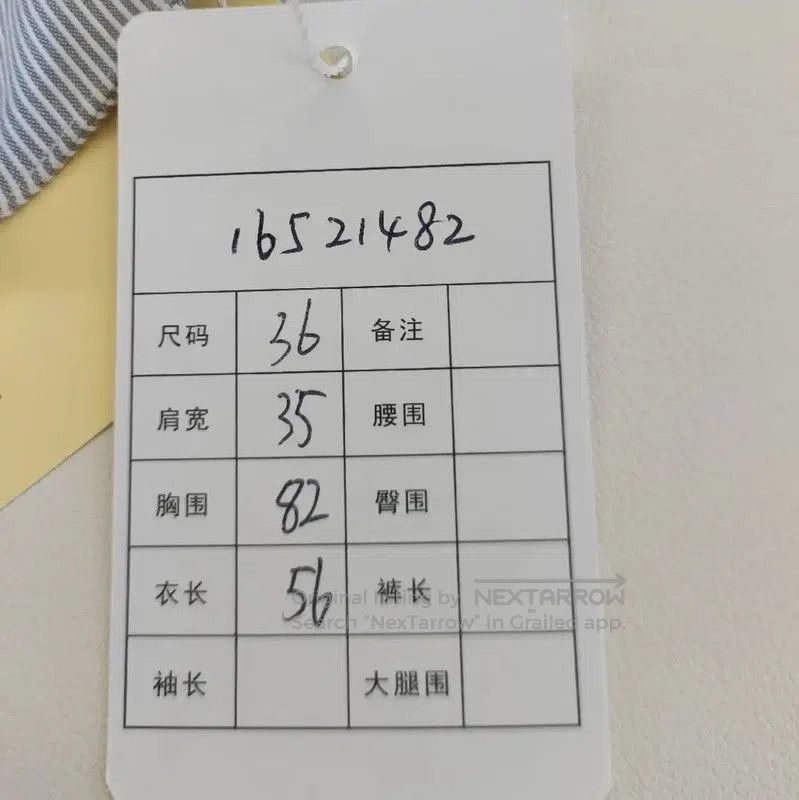 16521482
尺码 36 备注
肩宽 35 腰围
胸围 82 臀围
衣长 56 裤长
Original listing by NEXTARROW
Search "NexTarrow" in Grailed app.
袖长 大腿围